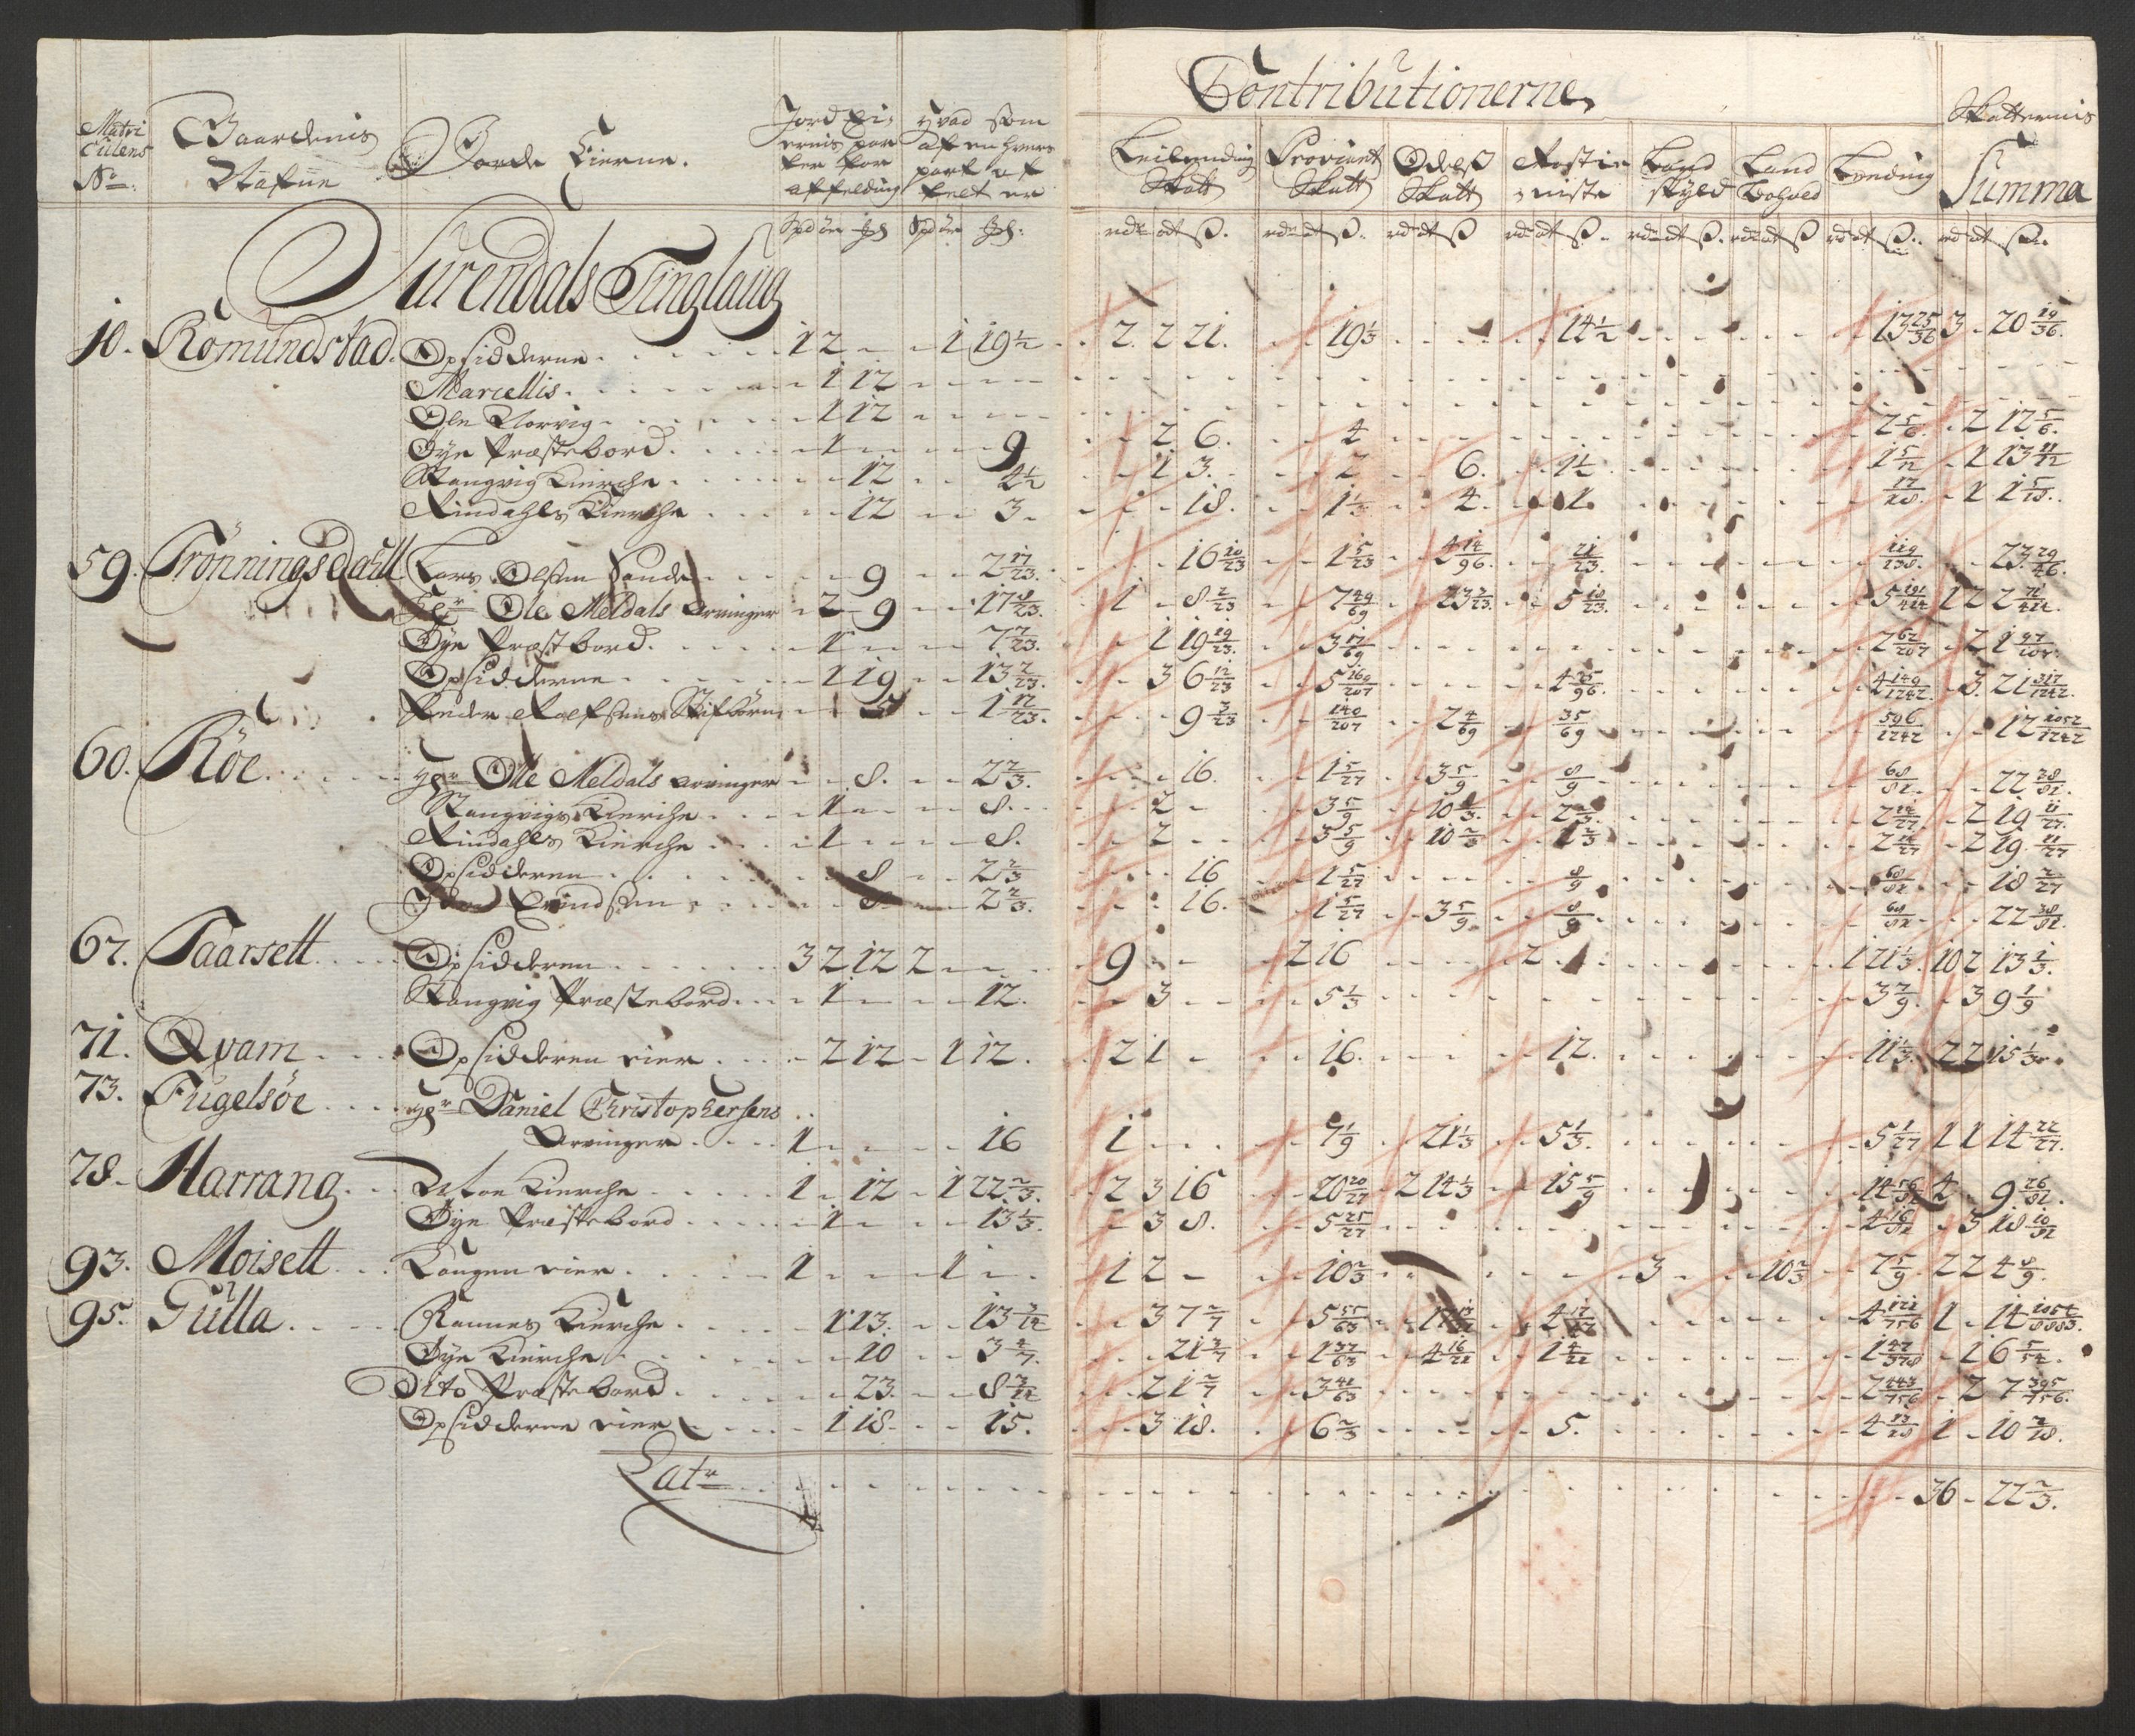 Contributionerne
Matri Culens No: Gaardenis Nafne Jorde Eierne. Jord Ei- ernis par ter for affelding Hvad som af en hvers part af felt er Leilending Skatt Proviant Skatt Odels Skatt Rostie niste Land skyld Land Bohved Leeding Skatternis Summa
Surendals Tinglaug
10. Romundstad. Opsidderne 1 2 1 19½ 2. 2 21. 19⅓ 14½ 13 25/36 3 - 20 19/36.
Marcellis. 1 12
Ole Norvig 1 12
Øye Præstebord. 1 9 2 6. 4 2 5/6. 2 12 5/6.
Stangvig Kierche 12 4½ 1 3. 2 6. 1½ 1 5/12 1 13 11/12
Rindahls Kierche 12 3. 18. 1⅓ 4. 1. 17/18. 1 1 5/18.
59. Trönningsdahll Lars Olsen Sande 9 2 17/23. 16 10/23 1 5/23 4 14/96. 21/23. 119/138. 23 29/46.
Hr Ole Meldals arvinger 2 9 17 8/23. 1 8 2/23 7 49/69 23 3/23. 5 18/23. 5 191/414 1 2 2 71/414.
Øye Præstbord. 1 7 7/23. 1 19 19/23. 3 17/69 2 67/207 2 1 47/207.
Opsidderne 1 19 13 2/23. 3 6 12/23 5 169/207 4 35/96. 4 149/1242 3. 21 317/1242.
Peder Rolfsens Stifbörn 5 1 17/23. 9 3/23 140/207 2 4/69 35/69 596/1242 12 1052/1242
60. Röe Hr Olle Meldals arvinger 8. 2⅔. 16. 1 5/27 3 5/9 8/9 68/81. 22 38/81.
Stangvigs Kierche 1 8. 2 3 5/9 10⅔. 2⅔. 2 14/27. 2 19 11/27.
Rindahls Kierche 1 8. 2 3 5/9 10⅔ 1⅔ 2 14/27 2 19. 11/27
Opsidderen 8 2⅔ 16 1 5/27 8/9 68/81 18 2/27
Erindsen 8 2⅔. 16. 1 5/27 3 5/9 8/9 68/81 22 38/81.
67. Taarsett Opsidderen 3 2 12 2 9 2 16 2 1 21⅓. 10 2 13⅓.
Stangvig Præstebord. 1 12. 3 5⅓ 3 7/9. 3 9 1/9
71. Qvam Opsidderen eier 2 12 1 12. 2 1 16. 12. 11⅓. 2 2 15⅓.
73. Fugelsöe Hr Daniel Christophersens
Arvinger 1 16 1 7 1/9 21⅓ 5⅓. 5 1/27 1 1 14 22/27.
78. Harrang Kierche 1 12 1 22⅔. 2 3 16 20 20/27 2 14⅓ 15 5/9 14 56/81 4 9 26/81.
Øye Præstebord 1 13⅓. 3 8. 5 25/27 4 16/81 3 18 10/81
93. Moisett Kongen eier 1 1 1 2 10⅔ 3 10⅔ 7 5/9 2 2 4 8/9.
95. Gulla Rannes Kierche 1 13. 13 3/14 3 7 2/7 5 55/63 17 13/21 4 17/42 4 121/756 1 14
Øye Kierche 10 3 4/7. 21 3/7 1 37/63 4 16/21 1 4/21 1 47/378 1 6 5/54.
Dito Præstebord 23. 8 3/14 2 1 2/7 3 41/63 2 443/756 2 7 395/756.
Opsidderne eier 1 18. 15. 3 18. 6⅔ 5. 4 13/18 1 10 7/18.
Latr 36 - 22⅔.